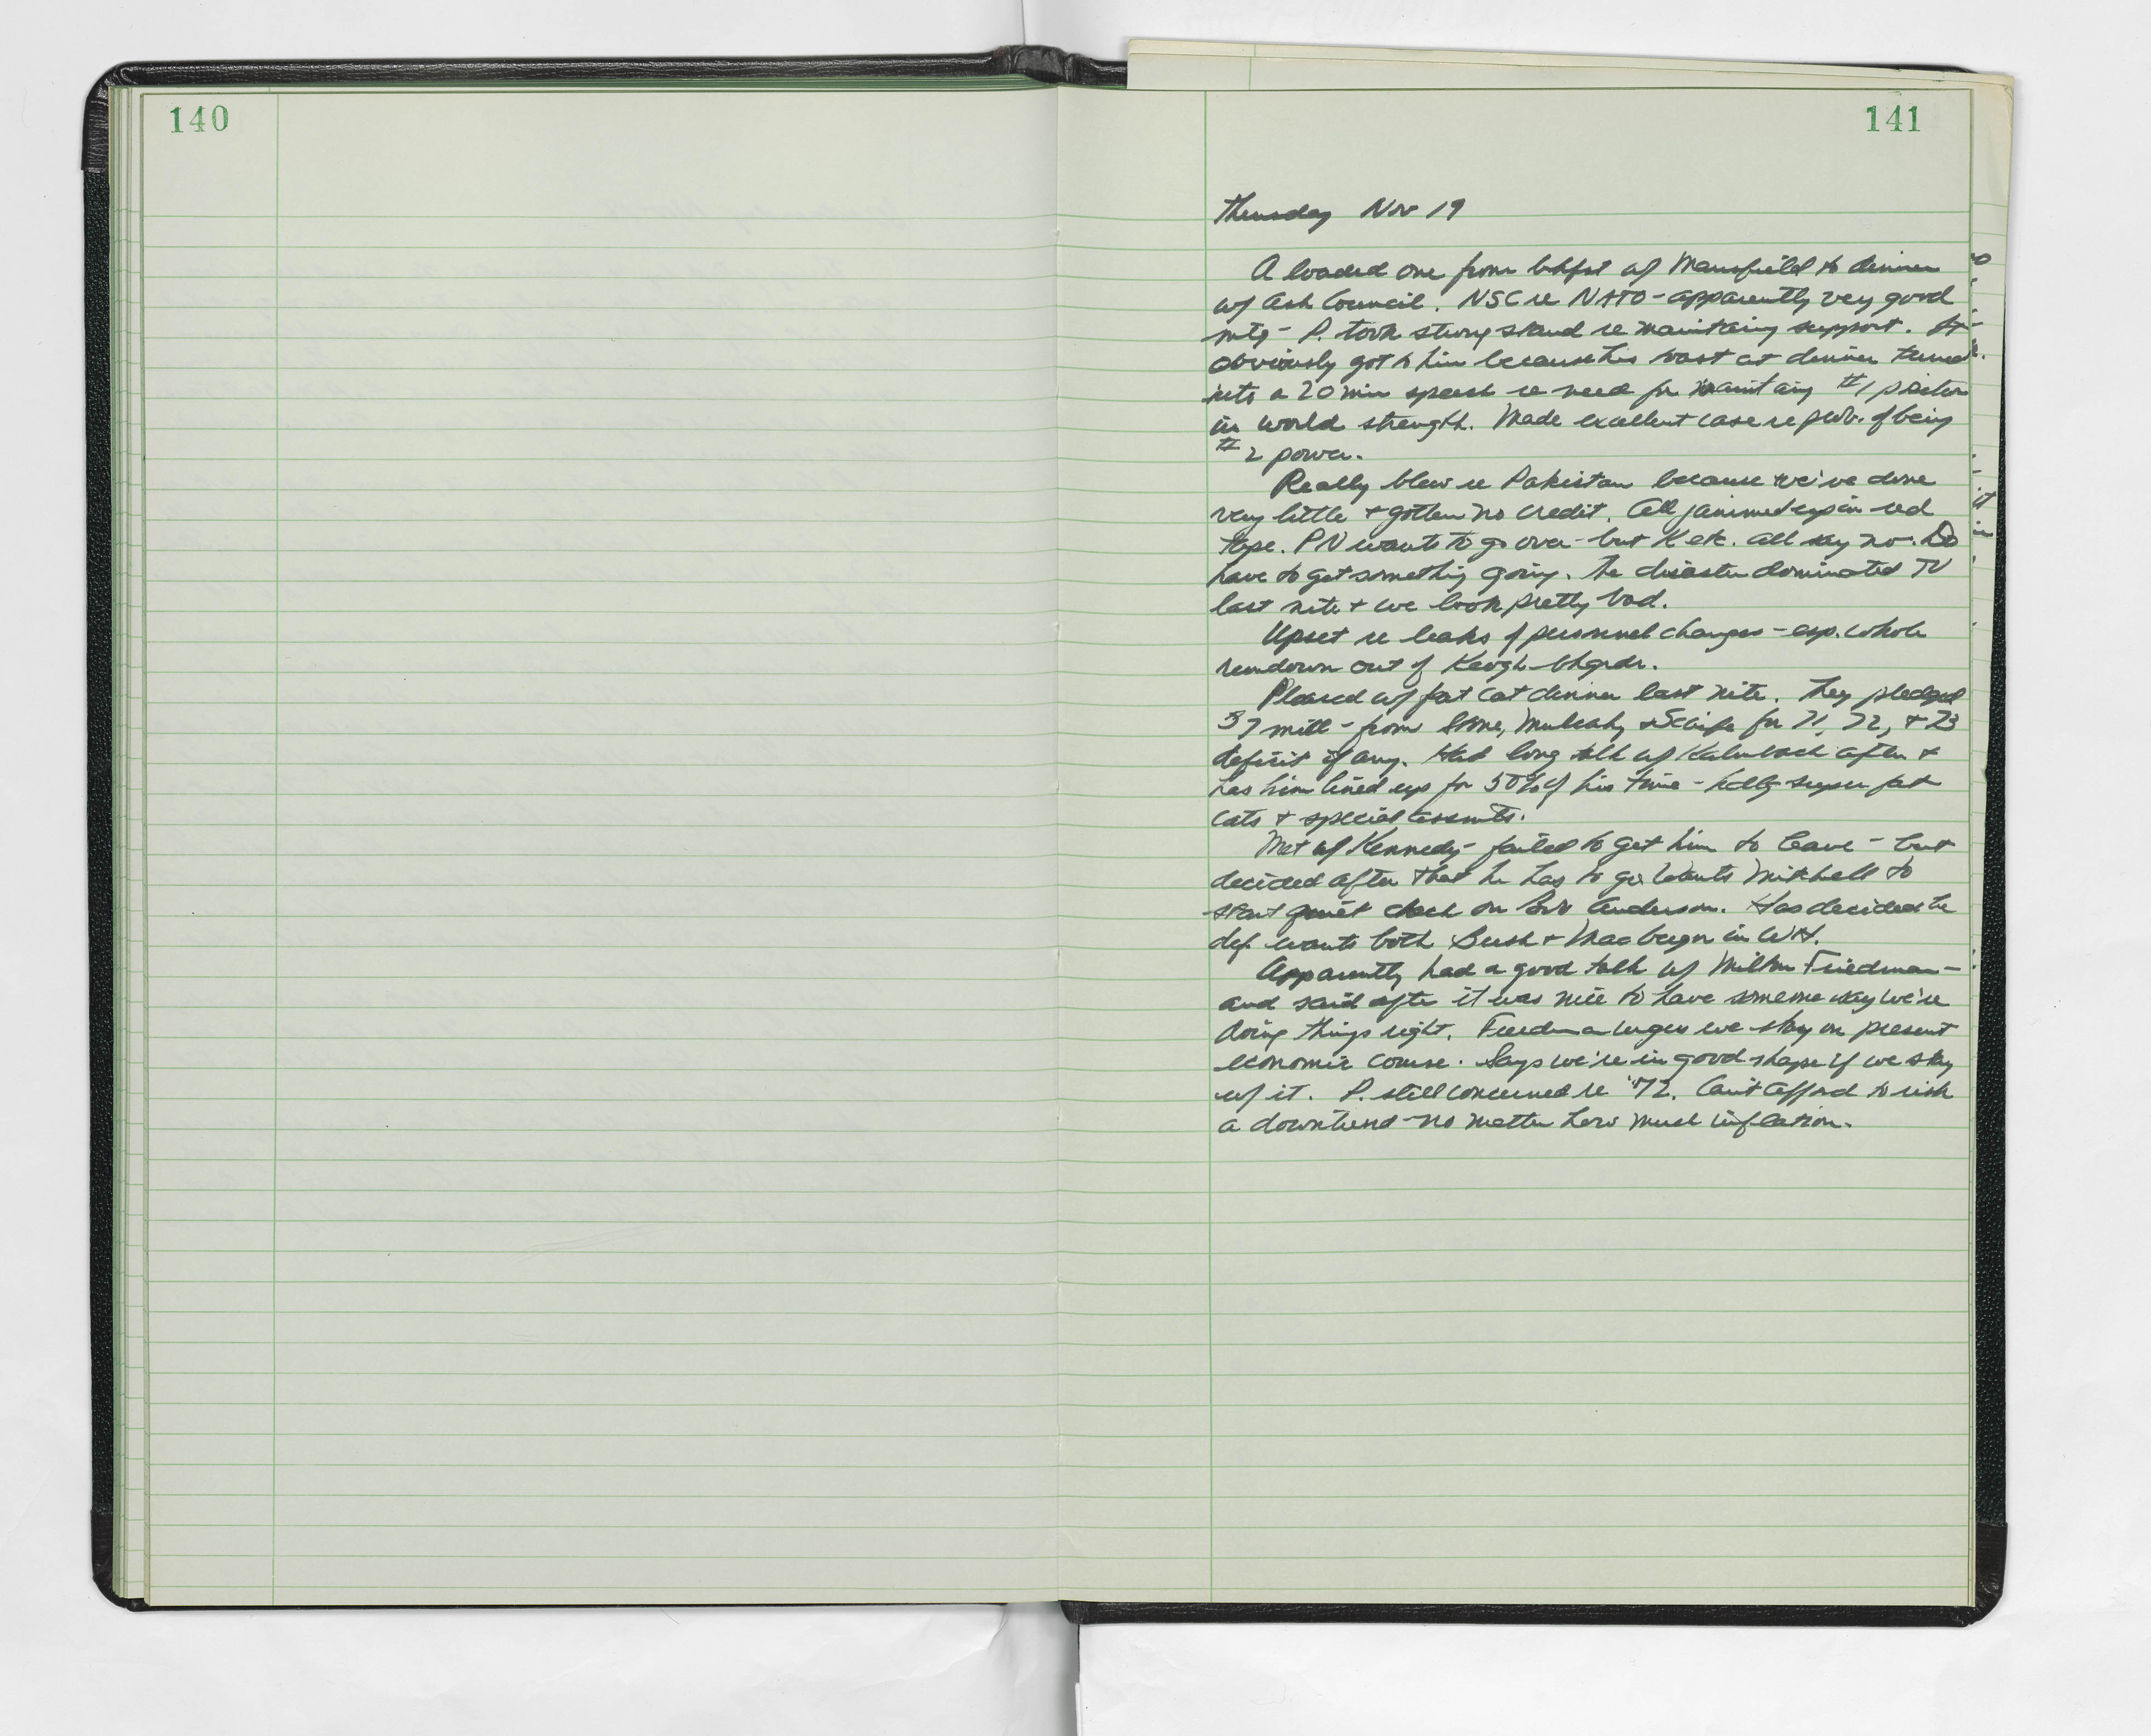 140
141
Thursday Nov 19
A loaded one from bkfst w/ Mansfield to dinner
w/ Ash Council. NSC re NATO - apparently very good
mtg - P. took strong stand re maintaing support. It
obviously got to him because his toast at dinner turned
into a 20 min speech re need for maintaing #1 position
in world strength. Made excellent case re prob. of being
#2 power.
Really blew re Pakistan because we've done
very little + gotten no credit. All jammed up in red
tape. PN wants to go over - but K etc. all say no. Do
have to get something going. The disaster dominated TV
last nite + we look pretty bad.
Upset re leaks of personnel changes - esp. whole
rundown out of Keogh bkgrdr.
Pleased w/ fat cat dinner last nite. They pledged
37 mill - from Stone, Mulcahy + Scaife for 71, 72, + 73
deficit if any. Had long talk w/ Kalmbach after +
has him lined up for 50% of his time - hdlg super fat
cats + special assmts.
Met w/ Kennedy - failed to get him to leave - but
decided after that he has to go. Wants Mitchell to
start quiet check on Anderson. Has decided he
def. wants both Bush + MacGregor in WH.
Apparently had a good talk w/ Milton Friedman -
and said after it was nice to have someone say we're
doing things right. Friedman urges we stay on present
economic course. Says we're in good shape if we stay
w/ it. P. still concerned re '72. Can't afford to risk
a downtrend - no matter how much inflation.